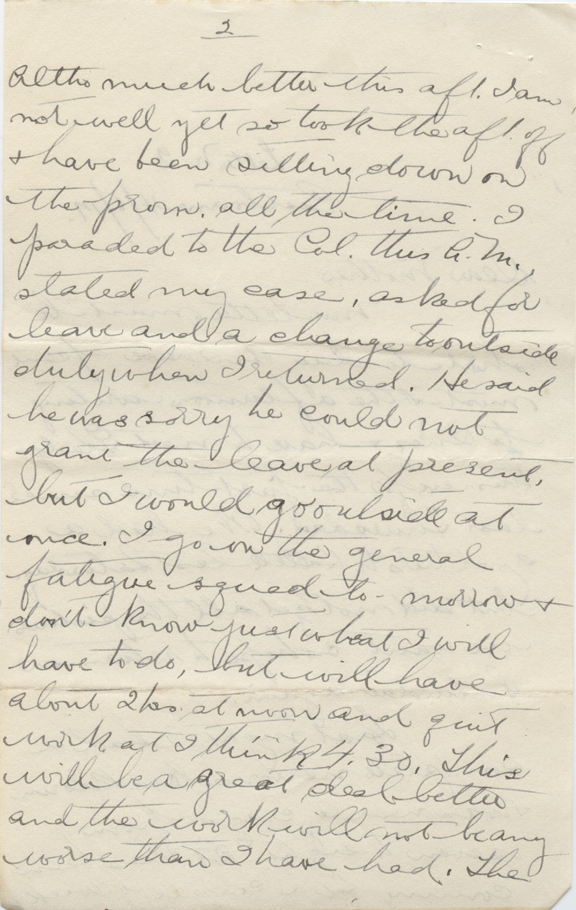 2
Altho much better this aft. I am
not well yet so took the aft. off
+ have been sitting down on
the prom. all the time. I
paraded to the Col. this A.M.,
stated my case, asked for
leave and a change to outside
duty when I returned. He said
he was sorry he could not
grant the leave at present,
but I would go outside at
once. I go on the general
fatigue squad to-morrow +
don't know just what I will
have to do, but will have
about 2 hrs. at noon and quit
work at I think 4.30. This
will be a great deal better
and the work will not be any
worse than I have had. The